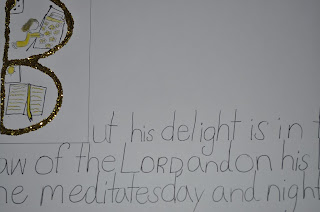 But his delight is in t
aw of the LORD and on his l
he meditates day and night